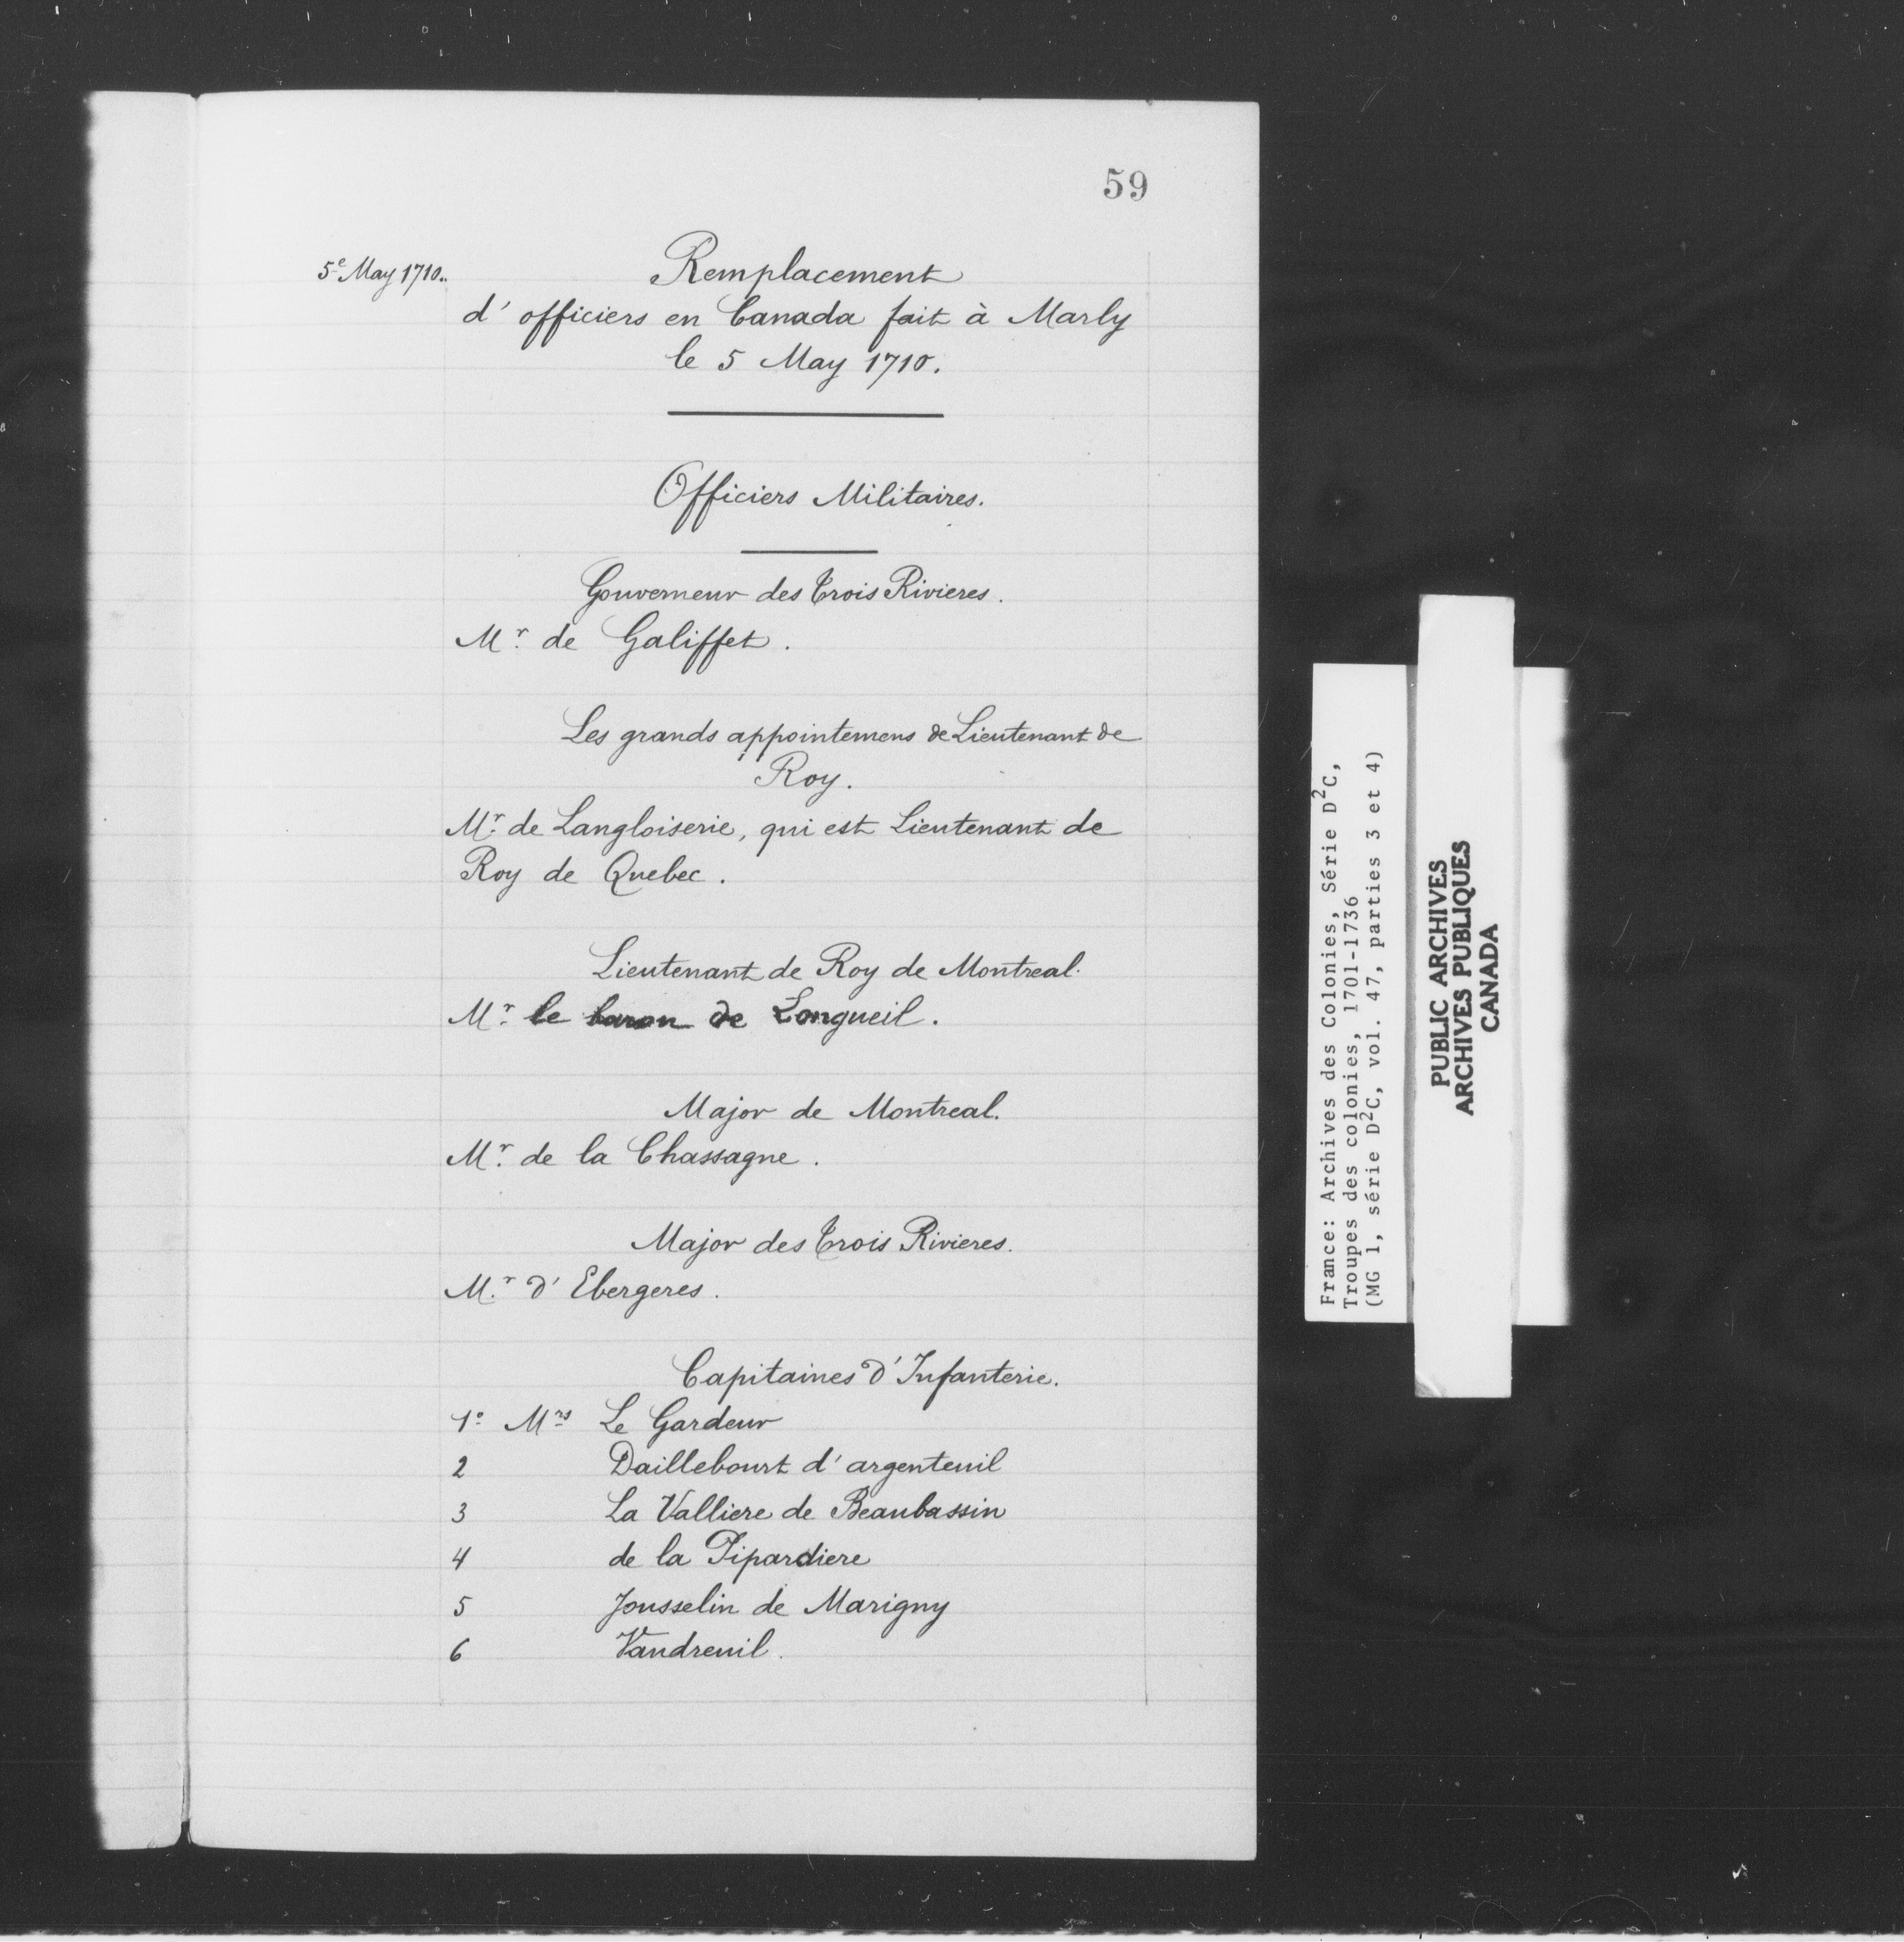 59
5e May 1710..
Remplacement
d' officiers en Canada fait à Marly
le 5 May 1710.
Officiers Militaires.
Gouverneur des Trois Rivieres.
Mr. de Galiffet.
Les grands appointemens de Lieutenant de
Roy.
Mr. de Langloiserie, qui est Lieutenant de
Roy de Quebec.
Lieutenant de Roy de Montreal.
Mr. le baron de Longueil.
Major de Montreal.
Mr. de la Chassagne.
Major des Trois Rivieres.
Mr. d' Ebergeres.
Capitaines d' Infanterie.
1o Mrs Le Gardeur
2 Daillebourt d' argenteuil
3 La Valliere de Beaubassin
4 de la Pipardiere
5 Jousselin de Marigny
6 Vaudreuil.
France: Archives des Colonies, Série D2C,
Troupes des colonies, 1701-1736
(MG 1, série D2C, vol. 47, parties 3 et 4)
PUBLIC ARCHIVES
ARCHIVES PUBLIQUES
CANADA